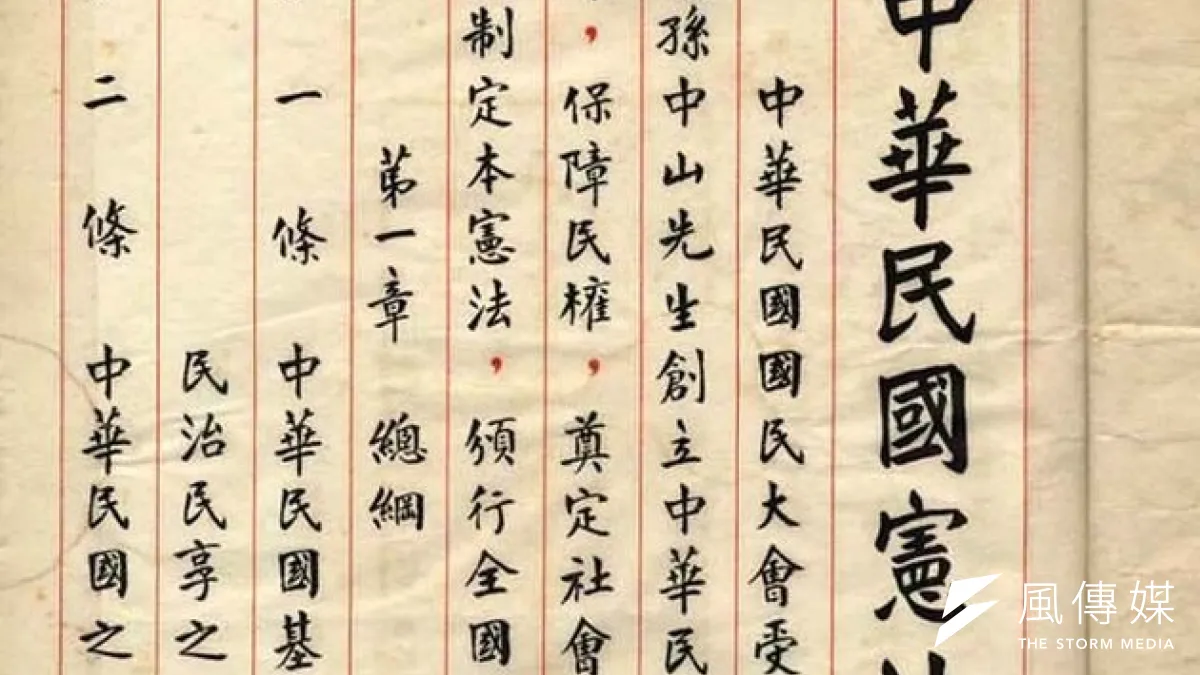 中華民國憲法
中華民國國民大會受
孫中山先生創立中華民
，保障民權，奠定社會
制定本憲法，頒行全國
第一章 總綱
一條 中華民國基
民治民享之
二條 中華民國之
風傳媒
THE STORM MEDIA